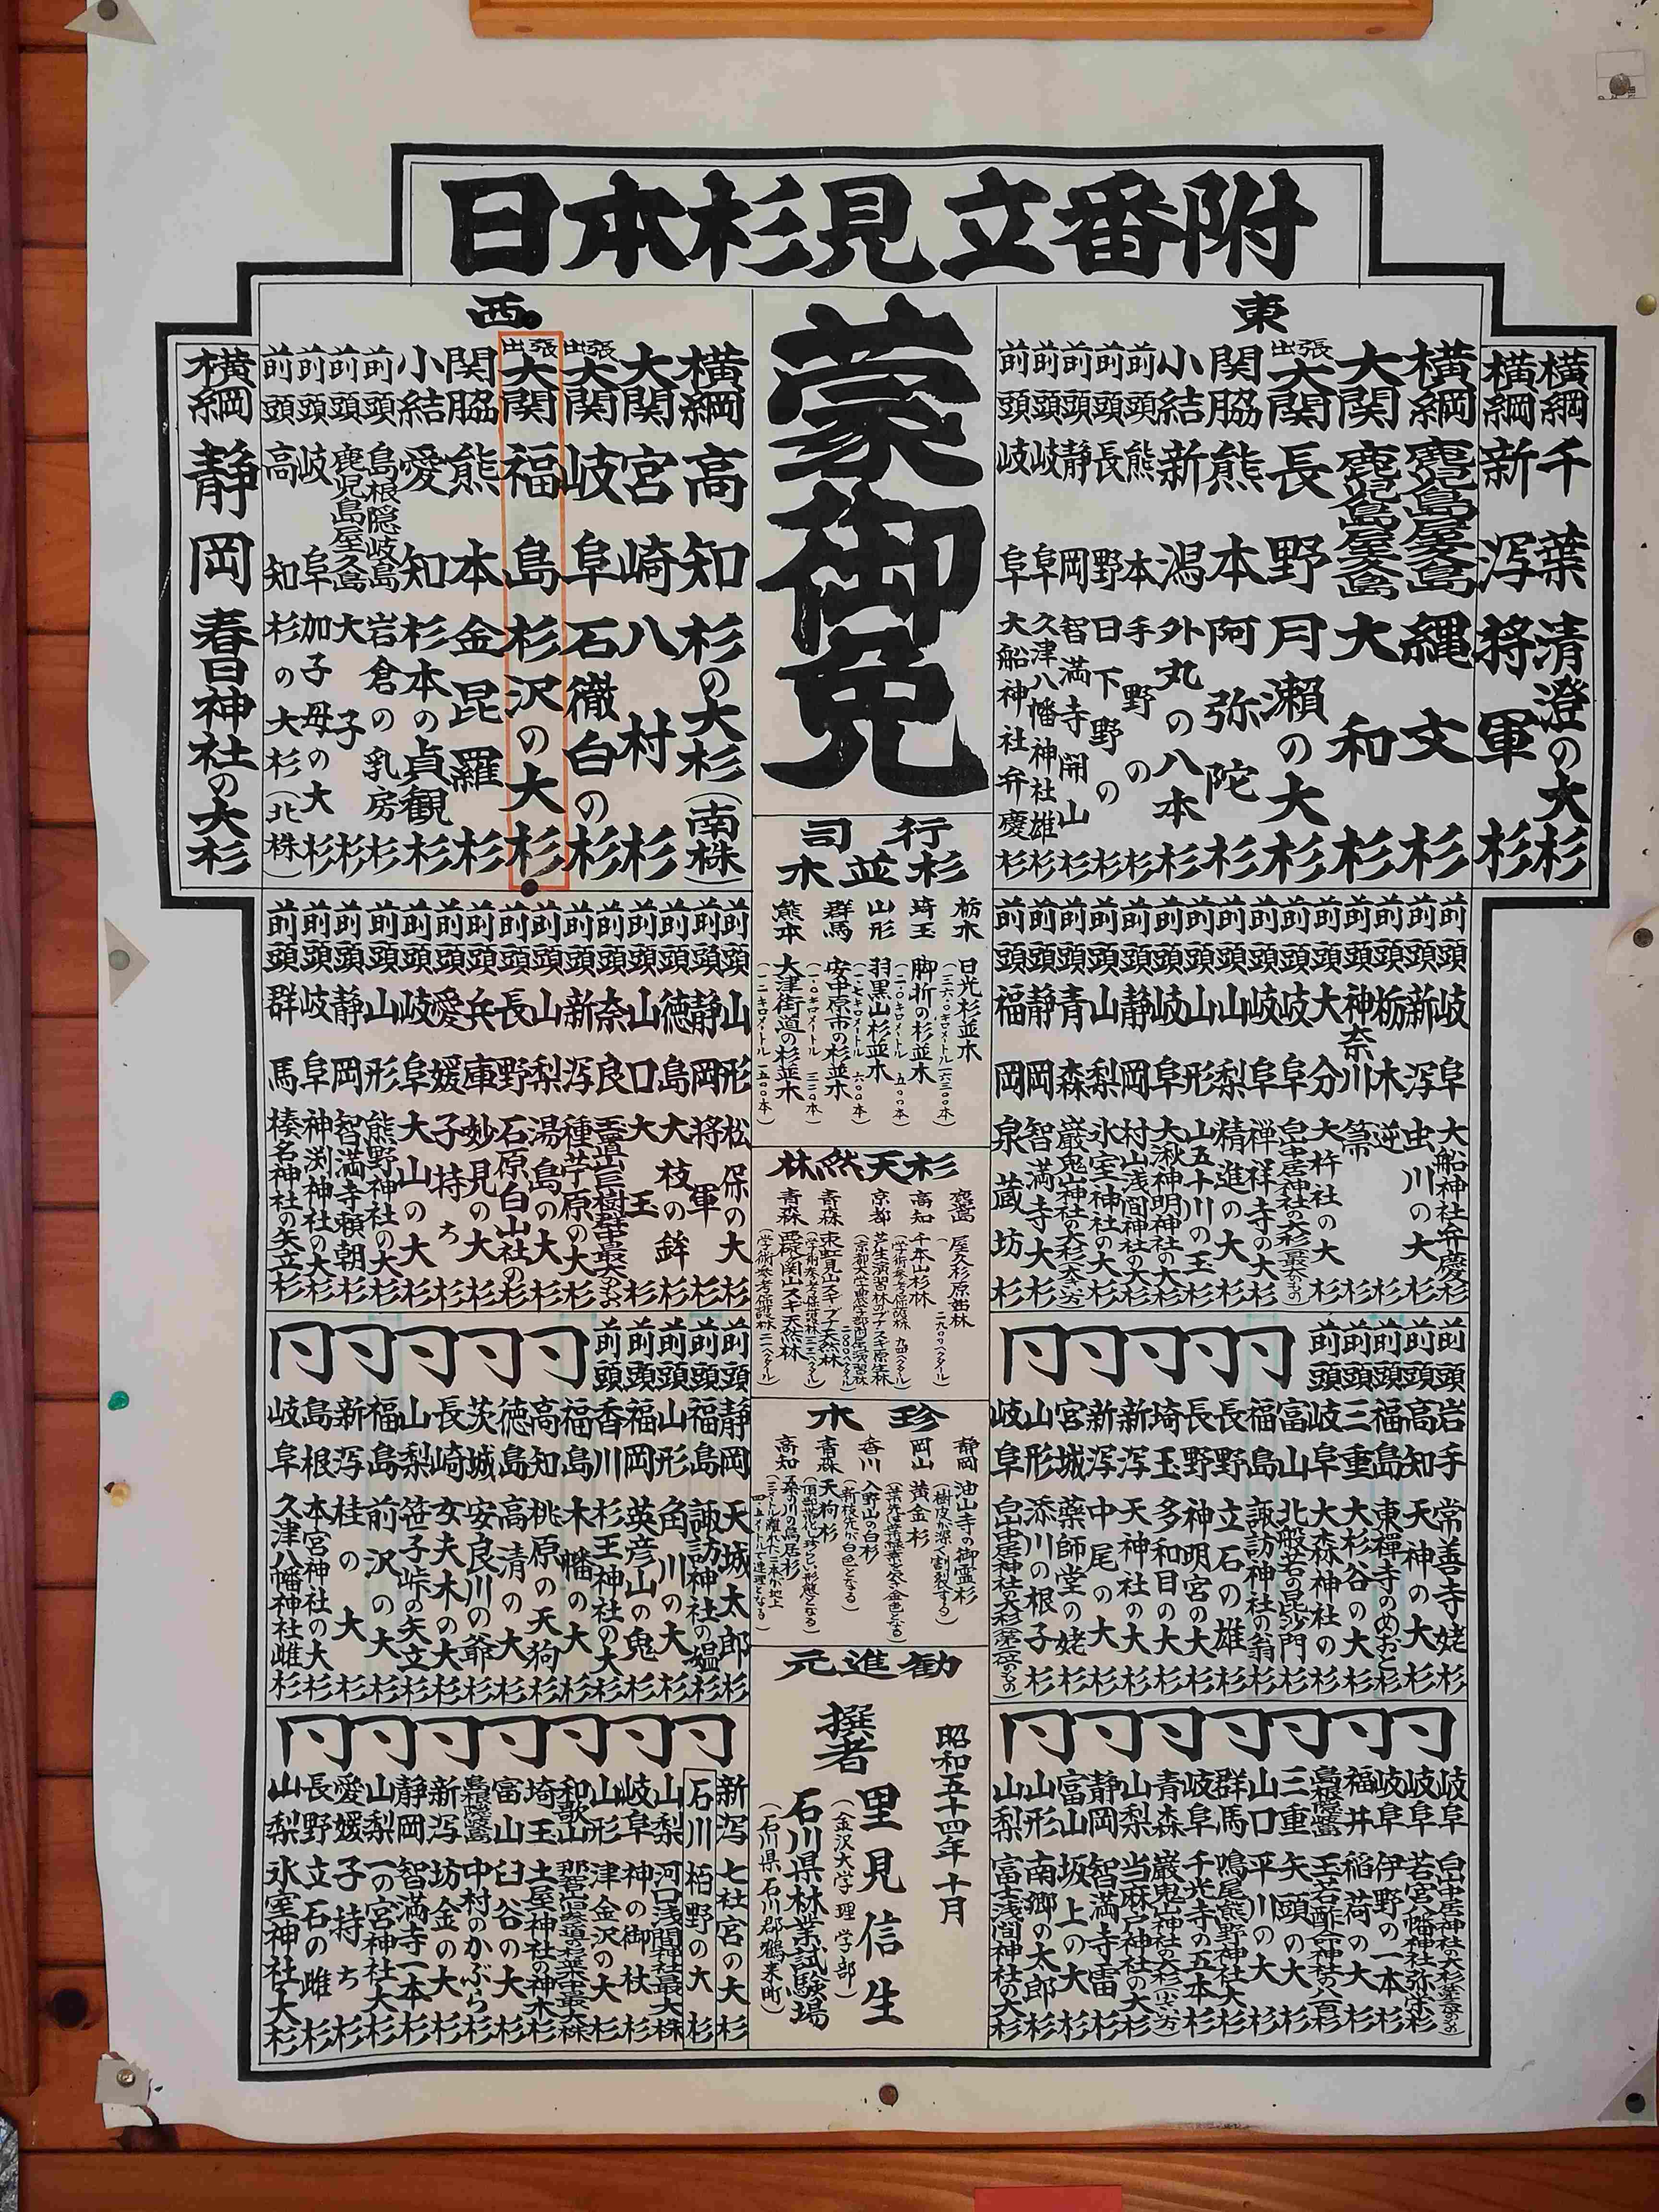 日本杉見立番附
東
横綱 千葉 清澄の大杉
横綱 新泻 将軍杉
横綱 鹿児島屋久島 縄文杉
大関 鹿児島屋久島 大和杉
張出大関 長野 月瀬の大杉
関脇 熊本 阿弥陀杉
小結 新潟 外丸の八本杉
前頭 熊本 手野の杉
前頭 長野 日下野の杉
前頭 静岡 智満寺開山杉
前頭 岐阜 久津八幡神社雄杉
前頭 岐阜 大船神社弁慶杉
蒙御免
西
横綱 高知 杉の大杉(南株)
大関 宮崎 八村杉
張出大関 岐阜 石徹白の杉
張出大関 福島 杉沢の大杉
関脇 熊本 金昆羅杉
小結 愛知 杉本の貞観杉
前頭 島根隠岐島 岩倉の乳房杉
前頭 鹿児島屋久島 大子杉
前頭 岐阜 加子母の大杉
前頭 高知 杉の大杉(北株)
横綱 静岡 春日神社の大杉
前頭 岐阜 大船神社弁慶杉
前頭 新泻 虫川の大杉
前頭 栃木 逆杉
前頭 神奈川 箒杉
前頭 大分 大杵社の大杉
前頭 岐阜 白山中居神社の大杉(最大のもの)
前頭 岐阜 禅祥寺の大杉
前頭 山梨 精進の大杉
前頭 山形 山五十川の玉杉
前頭 岐阜 大湫神明神社の大杉
前頭 静岡 村山浅間神社の大杉
前頭 山梨 氷室神社の大杉
前頭 青森 巌鬼山神社の大杉(大きい方)
前頭 静岡 智満寺大杉
前頭 福岡 泉蔵坊杉
行司
杉並木
栃木 日光杉並木
埼玉 脚折の杉並木
山形 羽黒山杉並木
群馬 安中原市の杉並木
熊本 大津街道の杉並木
前頭 山形 松保の大杉
前頭 静岡 将軍杉
前頭 徳島 大枝の鉾杉
前頭 山口 大玉杉
前頭 奈良
前頭 新泻 種苧原の大杉
前頭 山梨 湯島の大杉
前頭 長野 石原白山社の杉
前頭 兵庫 妙見の大杉
前頭 愛媛 子持ち杉
前頭 岐阜 大山の大杉
前頭 山形 熊野神社の大杉
前頭 静岡 智満寺頼朝杉
前頭 岐阜 神渕神社の大杉
前頭 群馬 榛名神社の矢立杉
杉天然林
屋久杉原始林
高知 千本山杉林
京都 芦生演習林のブナ・スギ原生林
青森
青森
前頭 岩手 常善寺姥杉
前頭 高知 天神の大杉
前頭 福島 東禅寺のめおと杉
前頭 三重 大杉谷の大杉
前頭 岐阜 大森神社の杉
富山 北般若の毘沙門杉
福島 諏訪神社の翁杉
長野 立石の雄杉
長野 神明宮の大杉
埼玉 多和目の大杉
新泻 天神社の大杉
新泻 中尾の大杉
宮城 薬師堂の姥杉
山形 添川の根子杉
岐阜 白山中居神社の大杉
珍木
静岡 油山寺の御霊杉
(樹皮が深く割裂する)
岡山 黄金杉
香川 入野山の白杉
(新枝先が白色となる)
青森 天狗杉
高知
前頭 静岡 天城太郎杉
前頭 福島 諏訪神社の媼杉
前頭 山形 角川の大杉
前頭 福岡 英彦山の鬼杉
前頭 香川 杉王神社の大杉
福島 木幡の大杉
高知 桃原の天狗杉
徳島 高清の大杉
茨城 安良川の爺杉
長崎 女夫木の大杉
山梨 笹子峠の矢立杉
福島 前沢の大杉
新泻 桂の大杉
島根 本宮神社の大杉
岐阜 久津八幡神社雌杉
岐阜 白山中居神社の大杉
岐阜 若宮八幡神社弥栄杉
岐阜 伊野の一本杉
福井 稲荷の大杉
三重 矢頭の大杉
山口 平川の大杉
群馬 鳴尾熊野神社大杉
岐阜 千光寺の五本杉
青森 巌鬼山神社の大杉(小さい方)
山梨 当麻戸神社の大杉
静岡 智満寺雷杉
富山 坂上の大杉
山形 南郷の太郎杉
山梨 富士浅間神社の大杉
勧進元
昭和五十四年十月
撰者
里見信生
(金沢大学理学部)
石川県林業試験場
(石川県石川郡鶴来町)
新泻 七社宮の大杉
石川 栢野の大杉
山梨 河口浅間神社最大株
岐阜 神の御杖杉
山形 津金沢の大杉
和歌山
埼玉 土屋神社の神木杉
富山 臼谷の大杉
中村のかぶら杉
新泻 坊金の大杉
静岡 智満寺一本杉
山梨 一の宮神社大杉
愛媛 子持ち杉
長野 立石の雌杉
山梨 氷室神社大杉